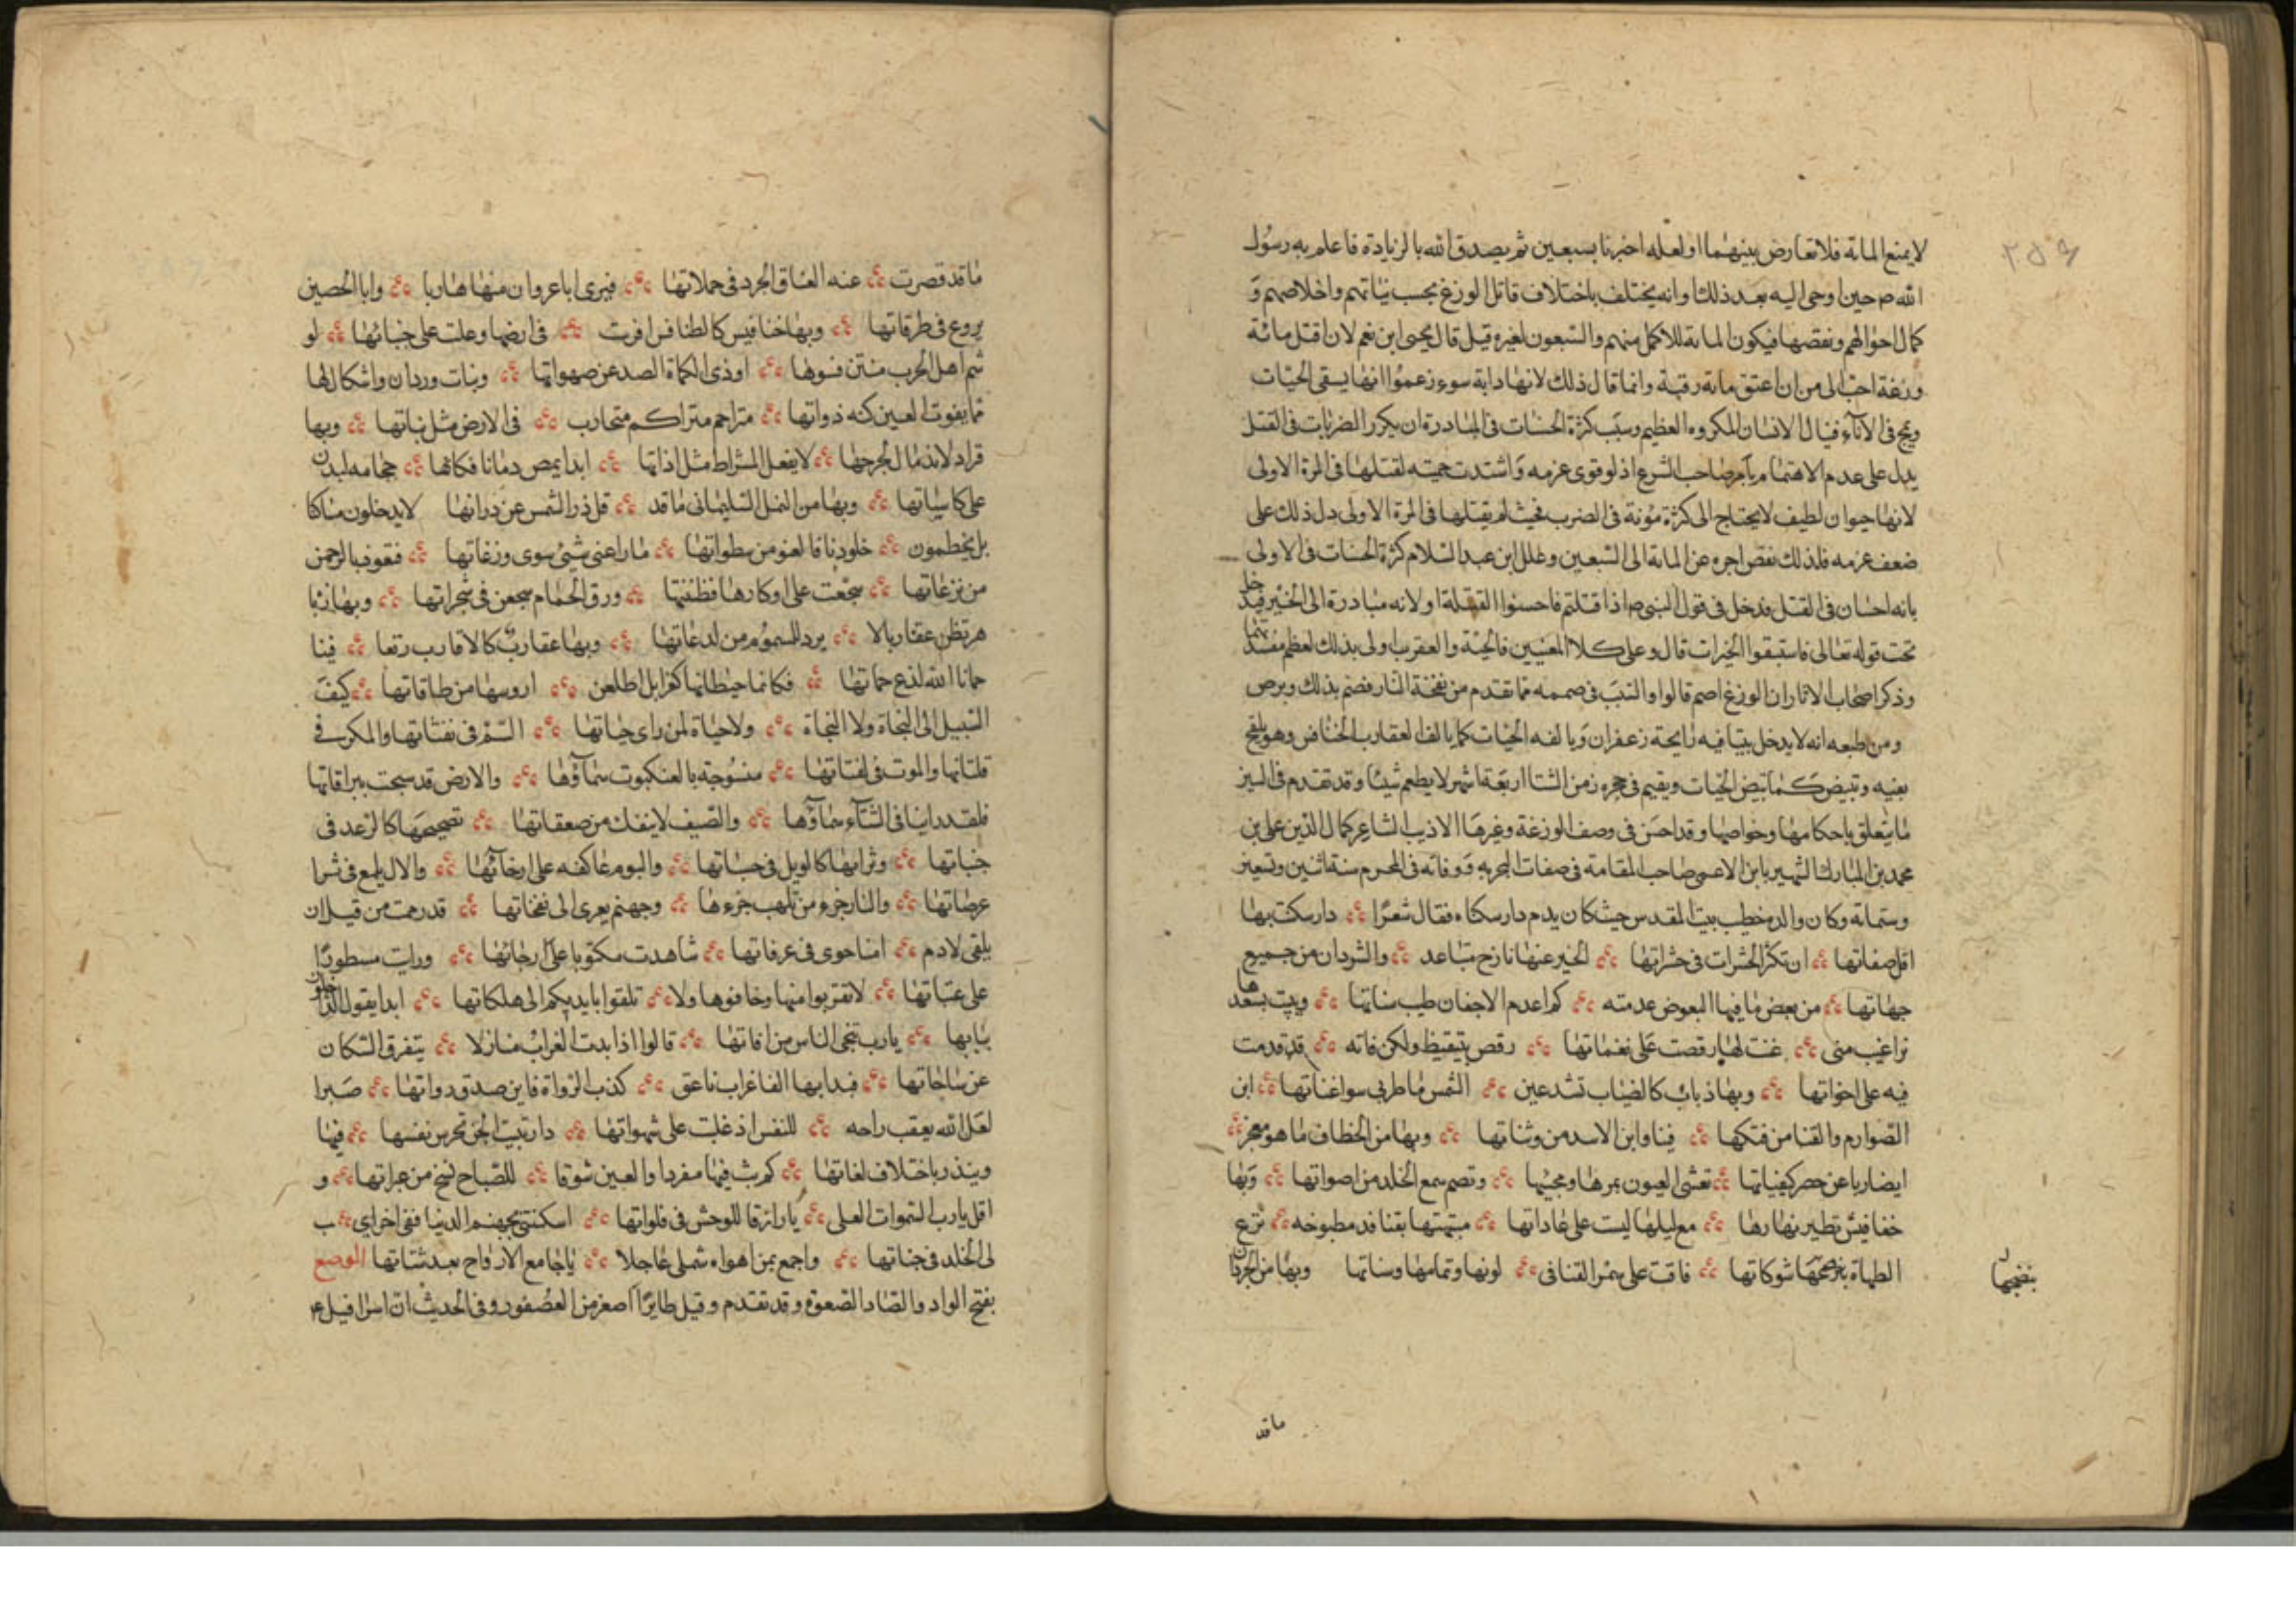 لا يمنع المائة فلا تعارض بينهما اولعله اخبرنا بسبعين ثم يصدق الله بالزيادة فاعلم به رسول
الله ص حين اوحى اليه بعد ذلك او انه يختلف باختلاف قاتل الوزغ بحسب نياتهم واخلاصهم و
كمال احوالهم ونقصها فيكون المائة للاكمل منهم والسبعون لغيره قيل قال يحيى ابن نعم لان اقتل مائة
وزغة احب الى من ان اعتق مائة رقبة وانما قال ذلك لانها دابة سوء زعموا انها يسقى الحيات
ويمج فى الآناء فينال الانسان المكروه العظيم وسبب كثرة الحسنات فى المبادرة ان يكرر الضربات فى القتل
يدل على عدم الاهتمام بامر صاحب الشرع اذ لو قوى عزمه واشتدت حميته لقتلها فى المرة الاولى
لانها حيوان لطيف لا يحتاج الى كثرة مؤنة فى الضرب فحيث لم يقتلها فى المرة الاولى دل ذلك على
ضعف عزمه فلذلك نقص اجره عن المائة الى السبعين وعلل ابن عبد السلام كثرة الحسنات فى الاولى
بانه احسان فى القتل فدخل فى قول النبى ص اذا قتلتم فاحسنوا القتلة او لانه مبادرة الى الخير فيدخل
تحت قوله تعالى فاستبقوا الخيرات قال وعلى كلا المعنيين فالحية والعقرب اولى بذلك لعظم مفسدتهما
وذكر اصحاب الاثار ان الوزغ اصم قالوا والسبب فى صممه ما تقدم من نفخه النار فصم بذلك وبرص
ومن طبعه انه لا يدخل بيتا فيه رايحة زعفران ويالفه الحيات كما يالف العقارب الخنافس وهو يلقح
بفيه وتبيض كما تبيض الحيات ويقيم فى جحره زمن الشتا اربعة اشهر لا يطعم شيئا وقد تقدم فى السين
ما يتعلق باحكامها وخواصها وقد احسن فى وصف الوزغة وغيرها الاديب الشاعر كمال الدين على بن
محمد بن المبارك الشهير بابن الاعمى صاحب المقامة فى صفات البحريه ووفاته فى المحرم سنة اثنين وتسعين
وستمائة وكان والده خطيب بيت المقدس حيث كان يذم دار سكناه فقال شعرا دار سكنت بها
اقل صفاتها ان تكثر الحشرات فى حشراتها الخير عنها نازح متباعد والشر دان من جميع
جهاتها من بعض ما فيها البعوض عدمته كم اعدم الاجفان طيب سناتها وتبيت تسعدها
براغيث متى غنت لها رقصت على نغماتها رقص بتيقيظ ولكن قافه قد قدمت
فيه على اخواتها وبها ذباب كالضباب تسد عين الشمس ما طربى سوا غناتها اين
الصوارم والقنا من فتكها فينا واين الاسد من وثباتها وبها من الخطاف ما هو معجز
ابصارنا عن حصر كيفياتها تعشى العيون بمرها ومجيئها وتصم سمع الخلد من اصواتها وبها
خفافيش تطير نهارها مع ليلها ليست على عاداتها شبهتها بقنافد مطبوخه نزع
الطهاة بنضجها شوكاتها فاقت على سمر القنا فى لونها وتمامها وسناتها وبها من الجرذان
بنضجها
ما قد
ما قد قصرت عنه العتاق الجرد فى حملاتها فيرى ابا غزوان منها هاربا وابا الحصين
يروغ فى طرقاتها وبها خنافيس كالطنافس افرشت فى ارضها وعلت على جنباتها لو
شم اهل الحرب منتن فسوها اردى الكماة الصد عن صهواتها وبنات وردان واشكال لها
مما يفوت العين كنه ذواتها متزاحم متراكم متحارب فى الارض مثل نباتها وبها
قراد لا اندمال لجرحها لا يفعل المشراط مثل اذاتها ابدا يمص دمانا فكانها حجامة لبدن
على كاسياتها وبها من النمل السليمانى ما قد قل ذر الشمس عن ذراتها لا يدخلون مساكنا
بل يحطمون جلودنا فالعفو من سطواتها ما راعنى شيئ سوى وزغاتها فنعوذ بالرحمن
من نزغاتها سجعت على اوكارها فظننتها ورق الحمام سجعن فى شجراتها وبها زنا
بر تظن عقاربا لا برد للسموم من لدغاتها وبها عقارب كالاقارب رتعا فينا
حمانا الله لذع حماتها فكانما حيطانها كغرابل اطلعن ارؤسها من طاقاتها كيف
السبيل الى النجاة ولا النجاة ولا حياة لمن راى حياتها السم فى نفثاتها والمكر فى
فلتاتها والموت فى لفتاتها منسوجة بالعنكبوت سماؤها والارض قد سبحت ببزاقاتها
فلقد راينا فى الشتاء سماؤها والصيف لا ينفك من صعقاتها تضجيجها كالرعد فى
جنباتها وترابها كالوبل فى حبباتها والبوم عاكفه على ارجائها والال يلمع فى ثرا
عرصاتها والنار جزء من تلهب حرها وجهنم يعزى الى نفخاتها قد رحمت من قبل ان
يلقى لادم امنا حوى فى عرفاتها شاهدت مكتوبا على ارجائها ورايت مسطورا
على عتباتها لا تقربوا منها وخافوها ولا تلقوا بايديكم الى هلكاتها ابدا يقول الداخلون
ببابها يارب نجى الناس من افاتها قالوا اذا بدت الغراب منازلا يتفرق السكان
عن ساحاتها فبدا بها الفا غراب ناعق كذب الرواة فاين صدق رواتها صبرا
لعل الله يعقب راحه للنفس اذ غلبت على شهواتها دار تبيت الجن تحرس نفسها فيها
وينذر باختلاف لغاتها كم بت فيها مفردا والعين شوقا للصباح تسح من عبراتها و
اقل يارب السموات العلى يا رازقا للوحش فى فلواتها اسكنتنى بجهنم الدنيا ففى اخراى هب
لى الخلد فى جناتها واجمع بمن اهواه شملى عاجلا يا جامع الارواح بعد شتاتها الوصع
بفتح الواو والصاد الصعوة وقد تقدم وقيل طايرا اصغر من العصفور وفى الحديث ان اسرافيل ع